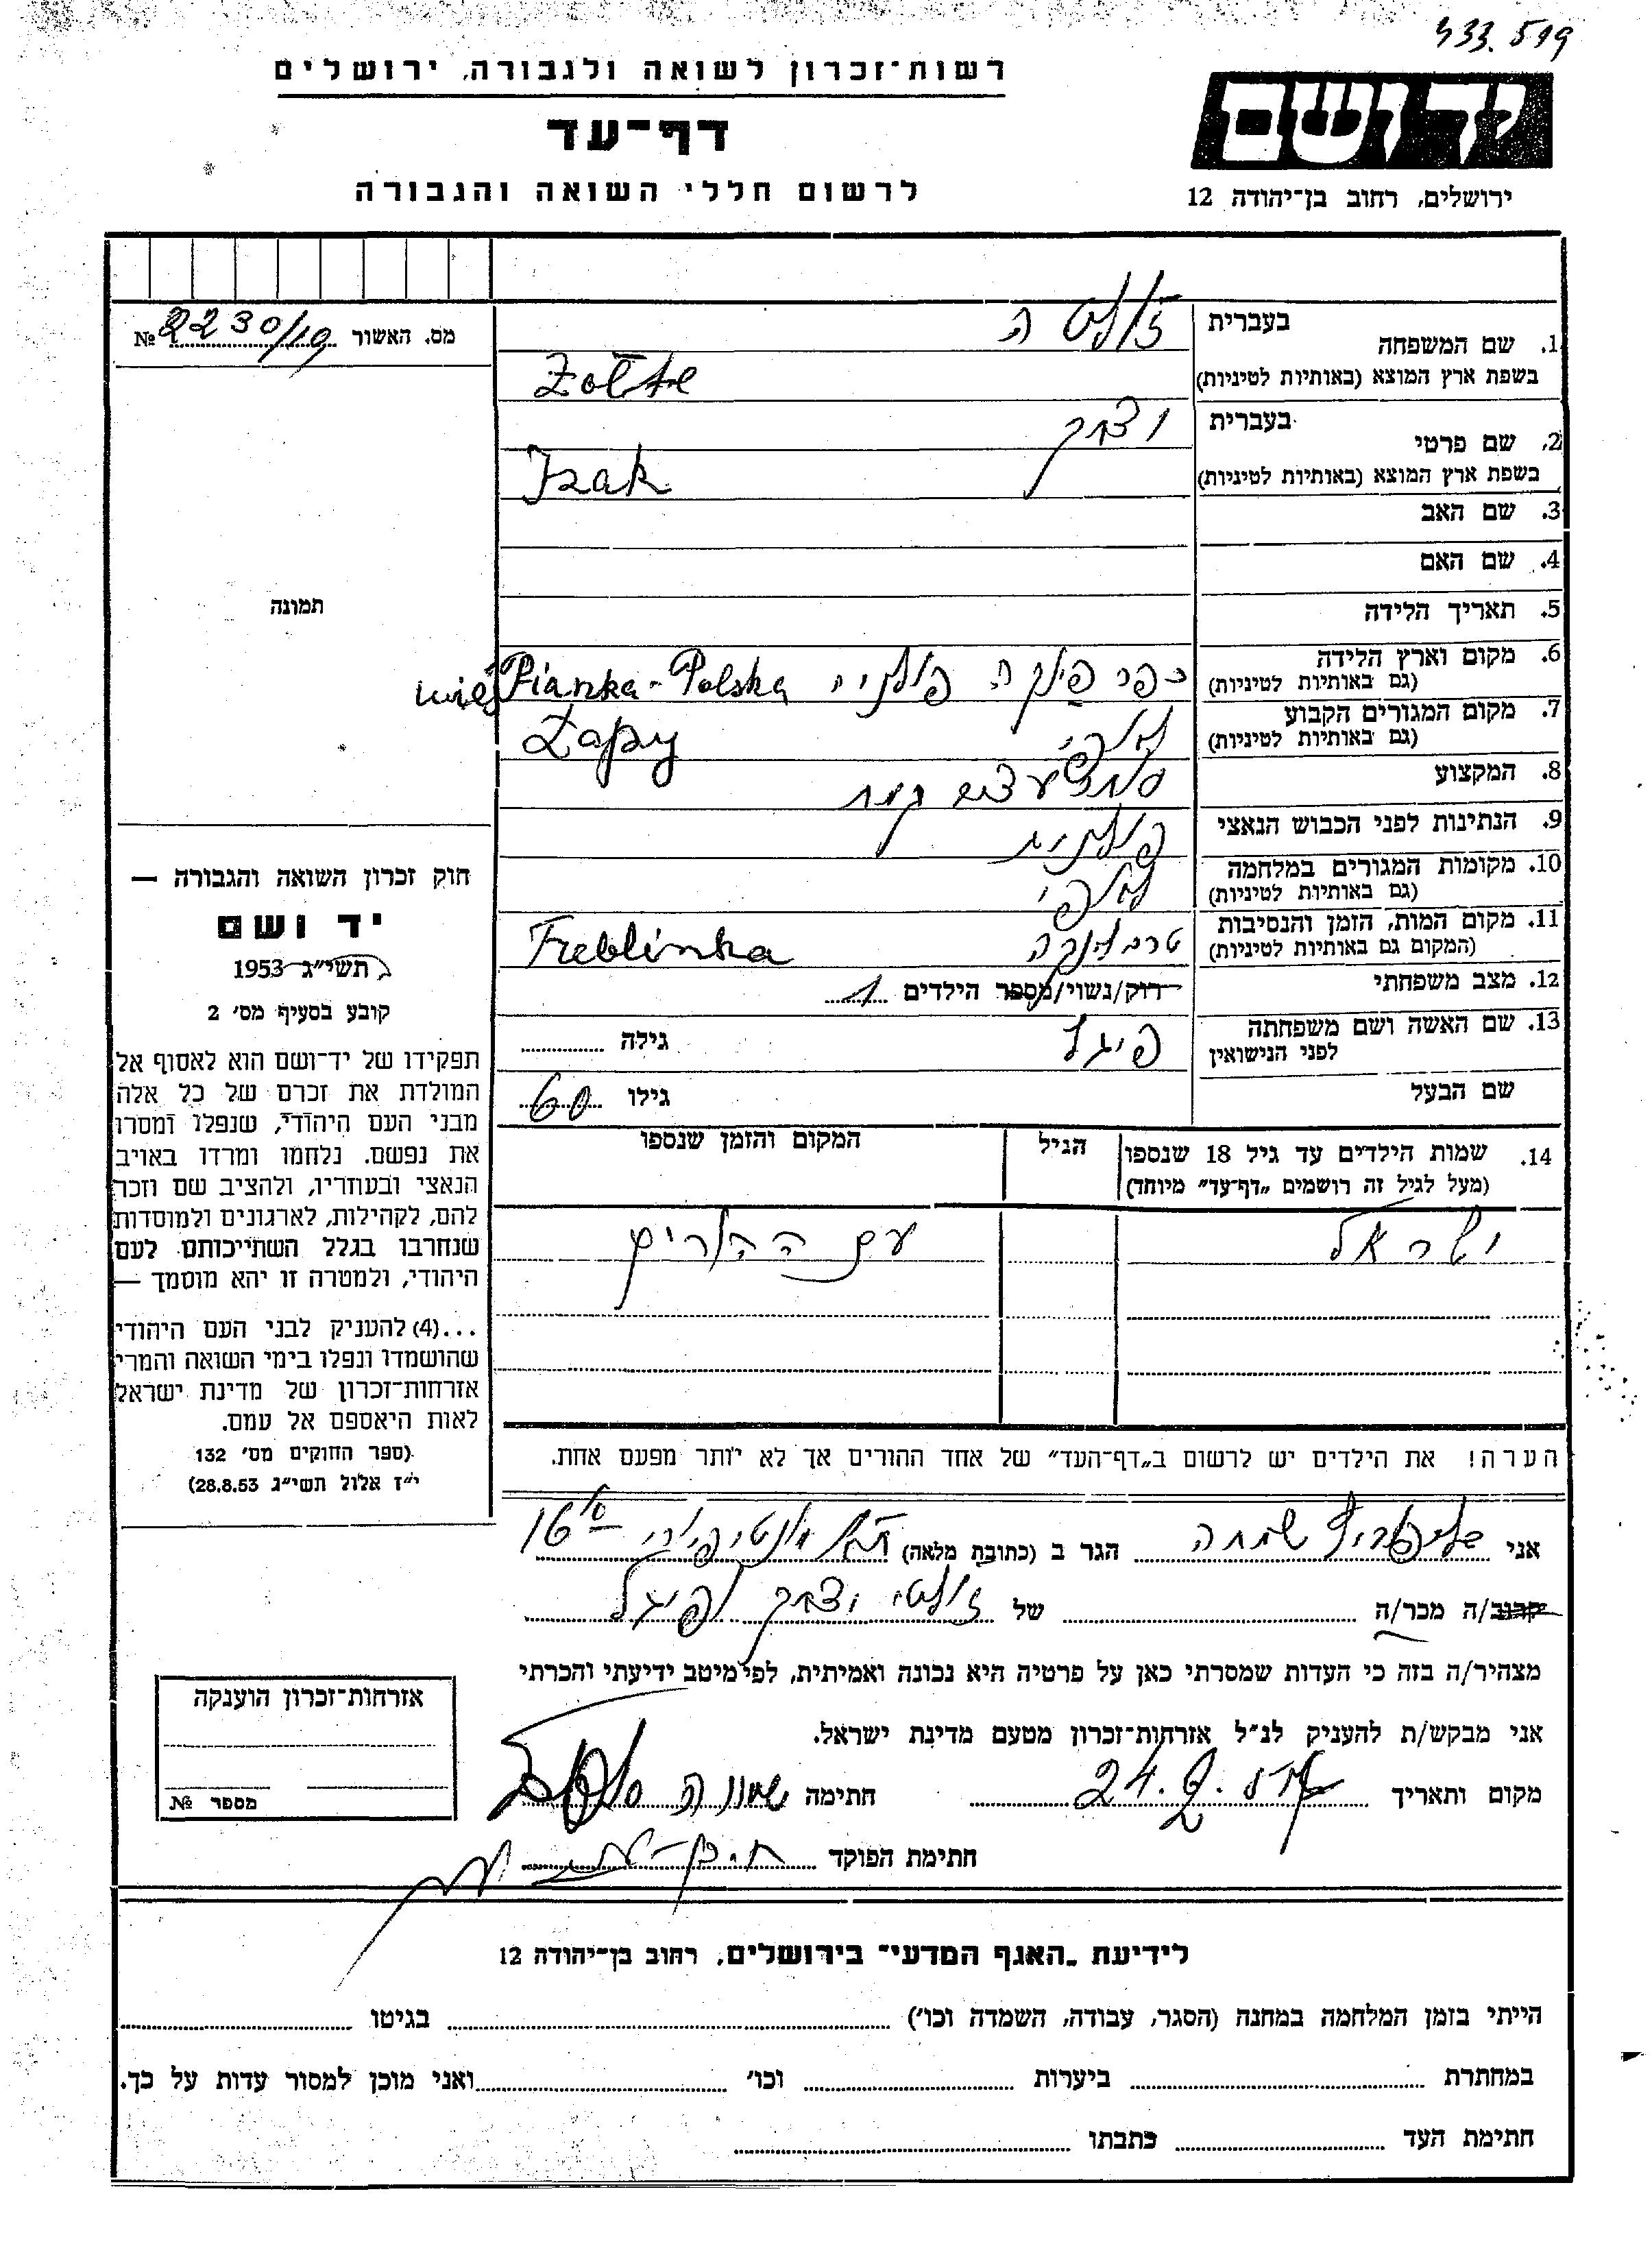 433.519
רשות־זכרון לשואה ולגבורה, ירושלים
דף־עד
לרשום חללי השואה והגבורה
יד ושם
ירושלים, רחוב בן־יהודה 12
מס. האשור 2230/19 №
תמונה
1. שם המשפחה
בעברית
בשפת ארץ המוצא (באותיות לטיניות)
Zołte
2. שם פרטי
בעברית יצחק
בשפת ארץ המוצא (באותיות לטיניות)
Izak
3. שם האב
4. שם האם
5. תאריך הלידה
6. מקום וארץ הלידה
(גם באותיות לטיניות)
כפר פינקה פולניה wieś Pianka-Polska
7. מקום המגורים הקבוע
(גם באותיות לטיניות)
Łapy
8. המקצוע
סוחר עצים קמח
9. הנתינות לפני הכבוש הנאצי
פולנית
10. מקומות המגורים במלחמה
(גם באותיות לטיניות)
לאפי
11. מקום המות, הזמן והנסיבות
(המקום גם באותיות לטיניות)
טרבלינקה Treblinka
12. מצב משפחתי
רוק/נשוי/מספר הילדים 1
13. שם האשה ושם משפחתה
לפני הנישואין
פיגל
גילה
שם הבעל
גילו 60
14. שמות הילדים עד גיל 18 שנספו
(מעל לגיל זה רושמים „דף־עד״ מיוחד)
הגיל
המקום והזמן שנספו
ישראל
עם ההורים
הערה! את הילדים יש לרשום ב„דף־העד״ של אחד ההורים אך לא יותר מפעם אחת.
חוק זכרון השואה והגבורה —
יד ושם
תשי״ג 1953
קובע בסעיף מס׳ 2
תפקידו של יד־ושם הוא לאסוף אל
המולדת את זכרם של כל אלה
מבני העם היהודי, שנפלו ומסרו
את נפשם. נלחמו ומרדו באויב
הנאצי ובעוזריו, ולהציב שם וזכר
להם, לקהילות, לארגונים ולמוסדות
שנחרבו בגלל השתייכותם לעם
היהודי, ולמטרה זו יהא מוסמך —
...(4) להעניק לבני העם היהודי
שהושמדו ונפלו בימי השואה והמרי
אזרחות־זכרון של מדינת ישראל
לאות היאספם אל עמם.
(ספר החוקים מס׳ 132
י״ז אלול תשי״ג 28.8.53)
אני שמחה הגר ב (כתובת מלאה) 16
קרוב/ה מכר/ה של זולטי יצחק ופיגל
מצהיר/ה בזה כי העדות שמסרתי כאן על פרטיה היא נכונה ואמיתית, לפי מיטב ידיעתי והכרתי
אני מבקש/ת להעניק לנ״ל אזרחות־זכרון מטעם מדינת ישראל.
מקום ותאריך 24. חתימה שמחה
חתימת הפוקד
אזרחות־זכרון הוענקה
מספר №
לידיעת „האגף המדעי״ בירושלים, רחוב בן־יהודה 12
הייתי בזמן המלחמה במחנה (הסגר, עבודה, השמדה וכו׳) בגיטו
במחתרת ביערות וכו׳ ואני מוכן למסור עדות על כך.
חתימת העד כתבתו